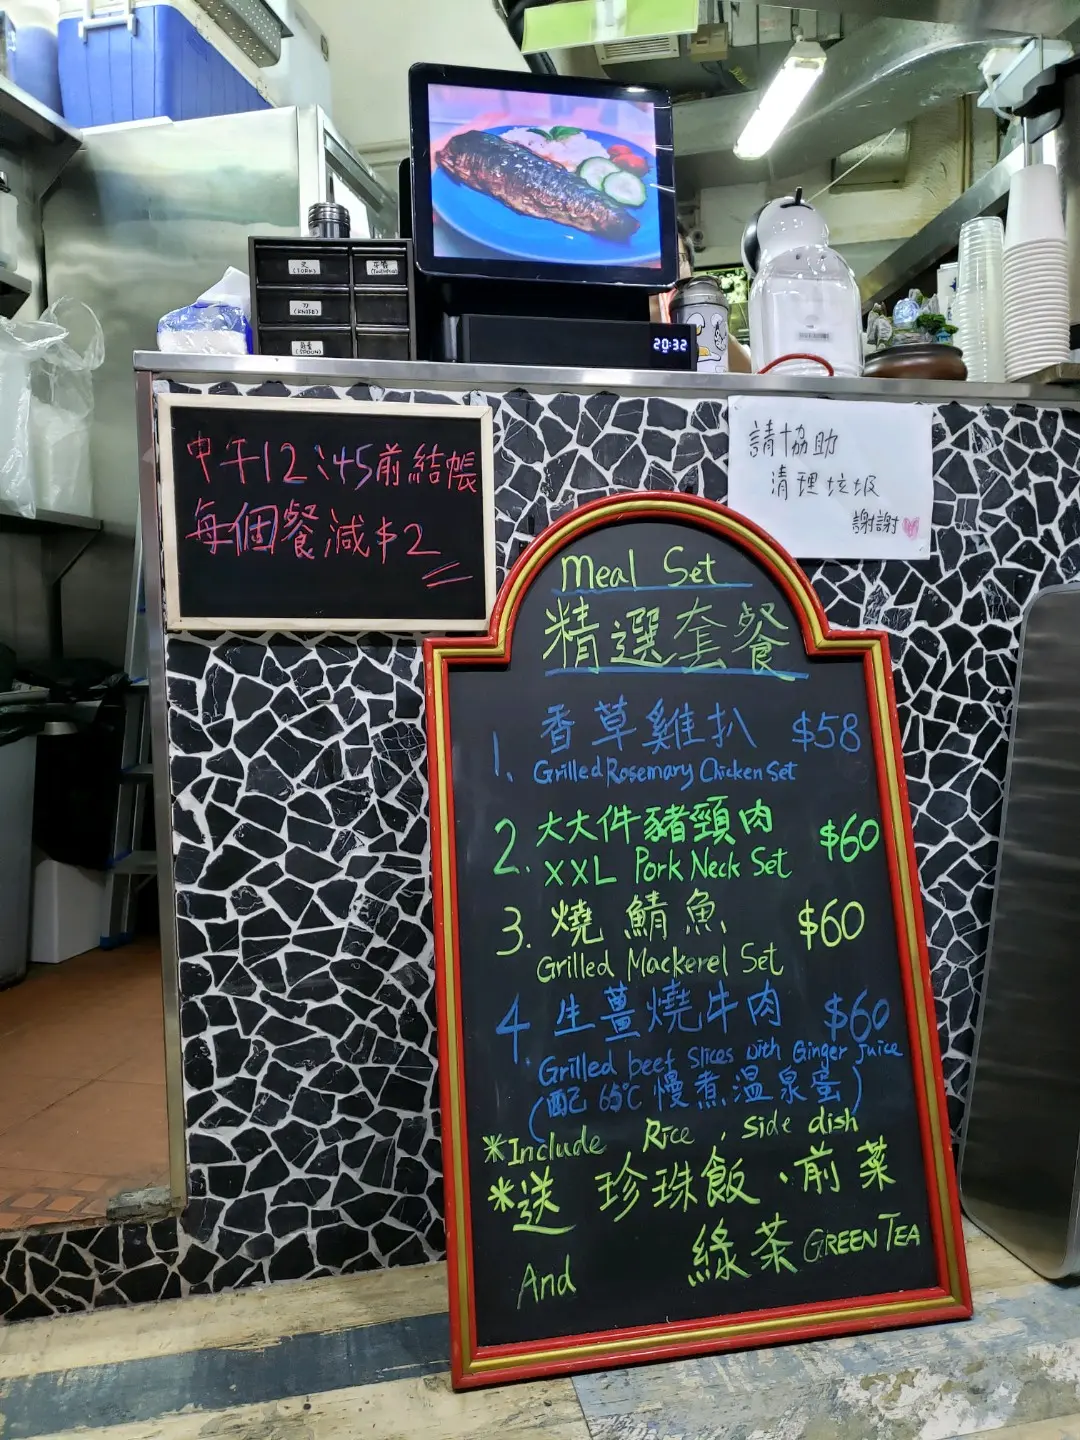 叉
(FORK)
刀
(KNIFE)
(SPOON)
20:32
中午12:45前結帳
每個餐減$2
請協助
清理垃圾
謝謝
Meal Set
精選套餐
1. 香草雞扒 $58
Grilled Rosemary Chicken Set
2. 大大件豬頸肉 $60
XXL Pork Neck Set
3. 燒鯖魚 $60
Grilled Mackerel Set
4. 生薑燒牛肉 $60
Grilled beef slices with Ginger juice
(配 65℃ 慢煮温泉蛋)
*Include Rice, side dish
*送 珍珠飯、前菜
綠茶 GREEN TEA
And